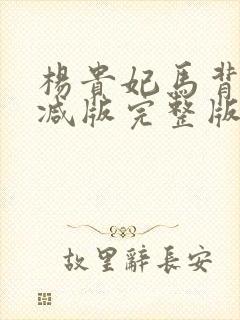 楊貴妃馬背
减版完整版
故里辭長安